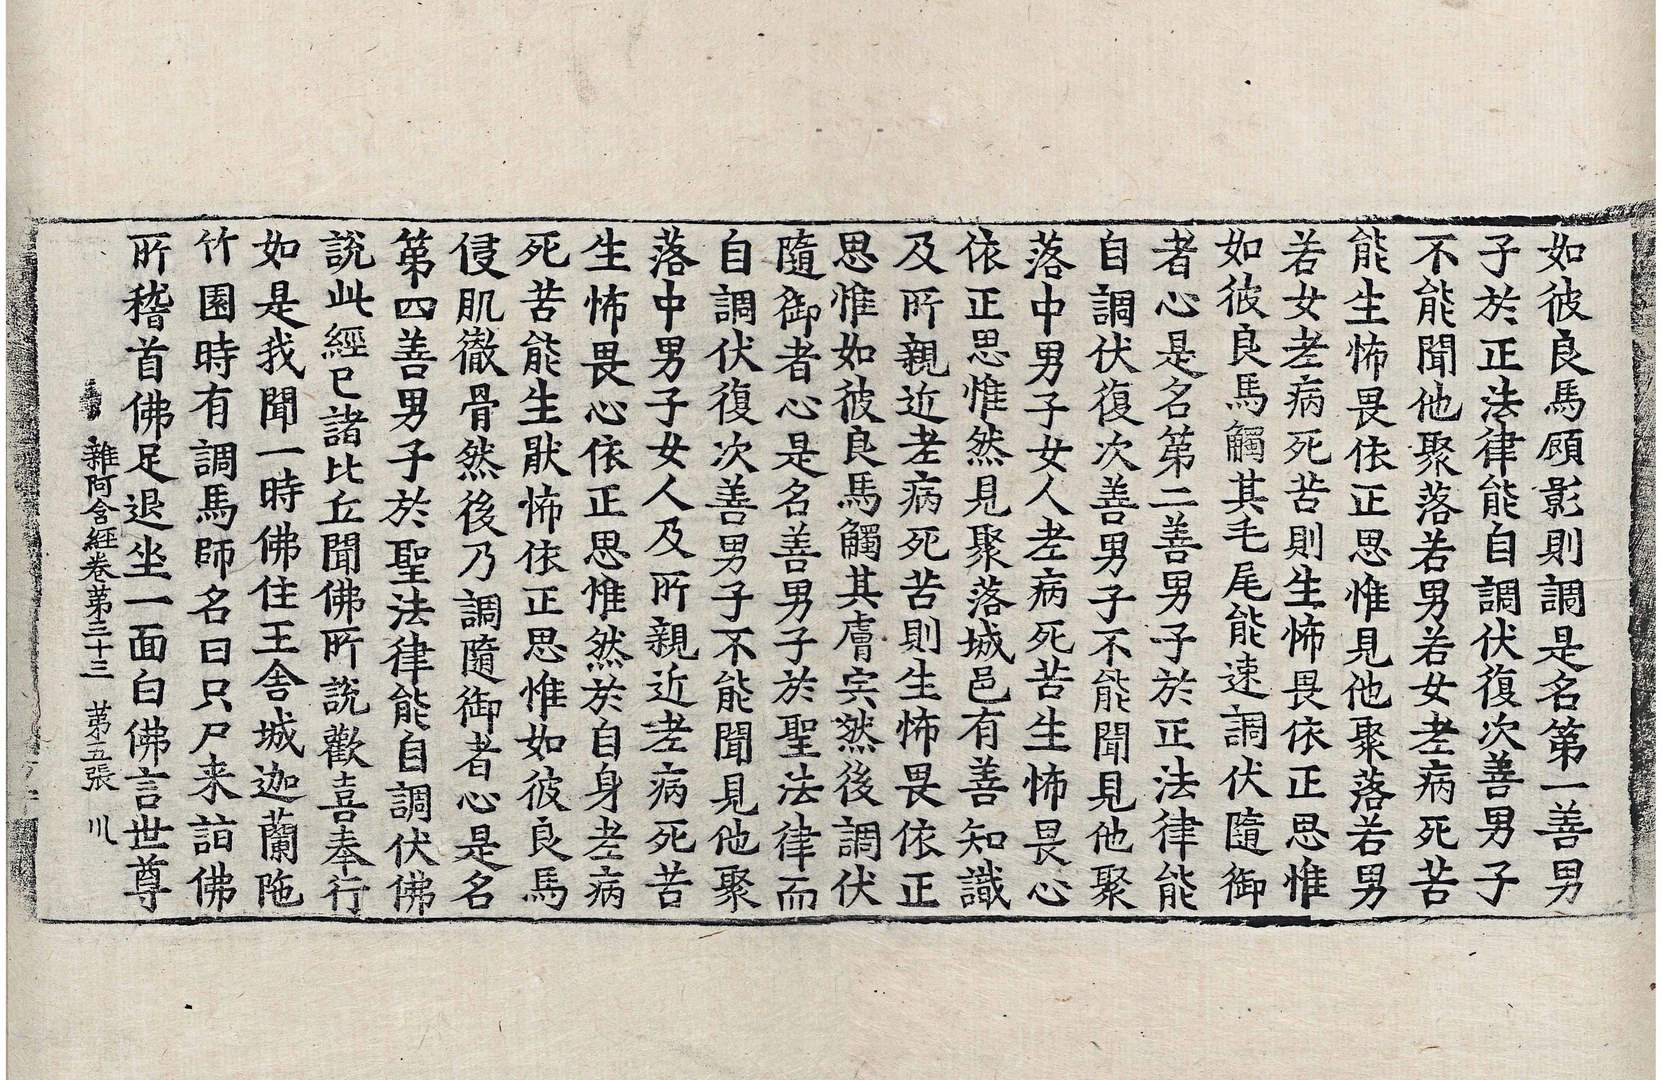 如彼良馬顧影則調是名第一善男
子於正法律能自調伏復次善男子
不能聞他聚落若男若女老病死苦
能生怖畏依正思惟見他聚落若男
若女老病死苦則生怖畏依正思惟
如彼良馬觸其毛尾能速調伏隨御
者心是名第二善男子於正法律能
自調伏復次善男子不能聞見他聚
落中男子女人老病死苦生怖畏心
依正思惟然見聚落城邑有善知識
及所親近老病死苦則生怖畏依正
思惟如彼良馬觸其膚宍然後調伏
隨御者心是名善男子於聖法律而
自調伏復次善男子不能聞見他聚
落中男子女人及所親近老病死苦
生怖畏心依正思惟然於自身老病
死苦能生猒怖依正思惟如彼良馬
侵肌徹骨然後乃調隨御者心是名
第四善男子於聖法律能自調伏佛
說此經已諸比丘聞佛所說歡喜奉行
如是我聞一時佛住王舍城迦蘭陁
竹園時有調馬師名曰只尸来詣佛
所稽首佛足退坐一面白佛言世尊
雜阿含經卷第三十三 第五張 川